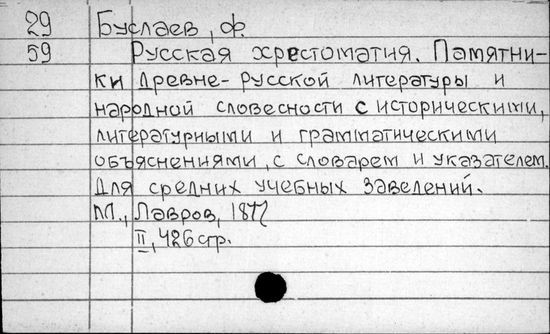 29 Буслаев, Ф.
59 Русская хрестоматия. Памятни-
ки древне-русской литературы и
народной словесности с историческими,
литературными и грамматическими
объяснениями, с словарем и указателем.
Для средних учебных заведений.
М., Лавров,
II, 426 стр.